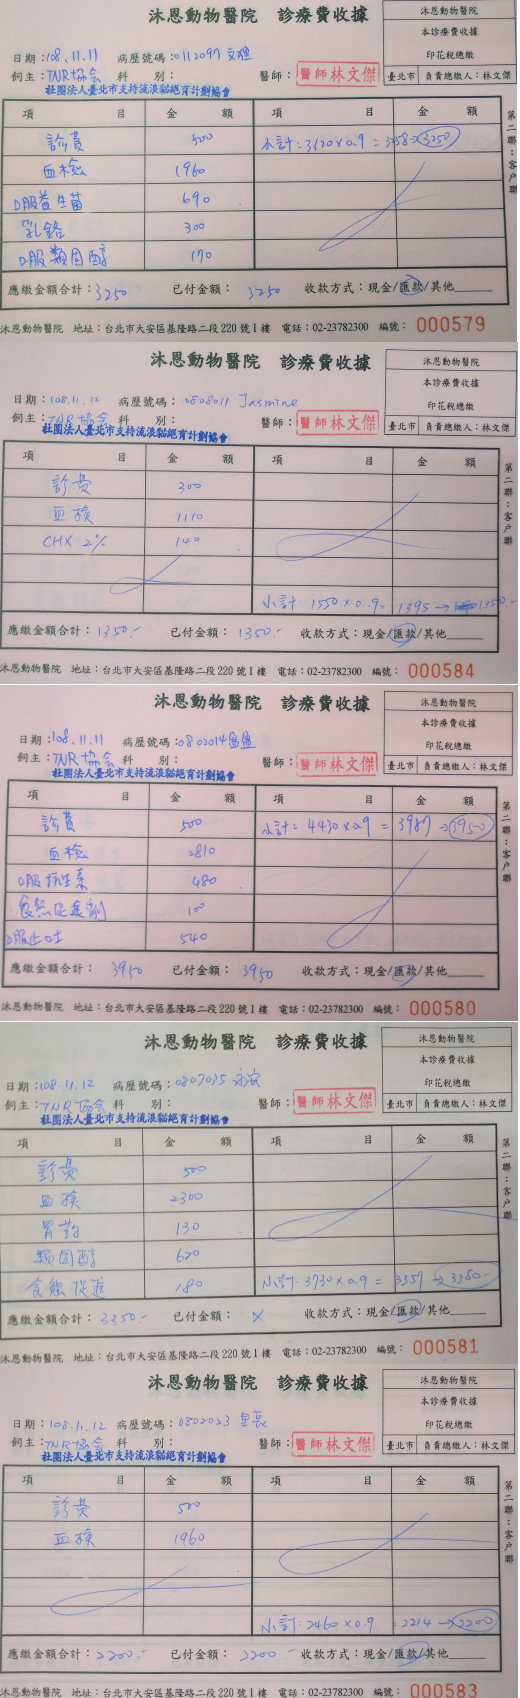 沐恩動物醫院 診療費收據
沐恩動物醫院
本診療費收據
印花稅總繳
臺北市 負責總繳人：林文傑
日期：108.11.11 病歷號碼：0112097
飼主：TNR協會 科 別： 醫師：醫師林文傑
社團法人臺北市支持流浪貓絕育計劃協會
項 目 金 額 項 目 金 額
診費 500 小計：3620×0.9=3258→3250
血檢 1960
口服益生菌 690
乳鉻 300
口服類固醇 170
第二聯：客戶聯
應繳金額合計：3250 已付金額：3250 收款方式：現金/匯款/其他
沐恩動物醫院 地址：台北市大安區基隆路二段220號1樓 電話：02-23782300 編號：000579
沐恩動物醫院 診療費收據
沐恩動物醫院
本診療費收據
印花稅總繳
臺北市 負責總繳人：林文傑
日期：108.11.12 病歷號碼：0808011 Jasmine
飼主：TNR協會 科 別： 醫師：醫師林文傑
社團法人臺北市支持流浪貓絕育計劃協會
項 目 金 額 項 目 金 額
診費 300
血檢 1110
CHX 2% 140
小計：1550×0.9=1395→1350.-
第二聯：客戶聯
應繳金額合計：1350.- 已付金額：1350.- 收款方式：現金/匯款/其他
沐恩動物醫院 地址：台北市大安區基隆路二段220號1樓 電話：02-23782300 編號：000584
沐恩動物醫院 診療費收據
沐恩動物醫院
本診療費收據
印花稅總繳
臺北市 負責總繳人：林文傑
日期：108.11.11 病歷號碼：0802014
飼主：TNR協會 科 別： 醫師：醫師林文傑
社團法人臺北市支持流浪貓絕育計劃協會
項 目 金 額 項 目 金 額
診費 500 小計：4430×0.9=3987→3950
血檢 2810
口服抗生素 480
食慾促進劑 100
口服止吐 540
第二聯：客戶聯
應繳金額合計：3950 已付金額：3950 收款方式：現金/匯款/其他
沐恩動物醫院 地址：台北市大安區基隆路二段220號1樓 電話：02-23782300 編號：000580
沐恩動物醫院 診療費收據
沐恩動物醫院
本診療費收據
印花稅總繳
臺北市 負責總繳人：林文傑
日期：108.11.12 病歷號碼：0807035 永安
飼主：TNR協會 科 別： 醫師：醫師林文傑
社團法人臺北市支持流浪貓絕育計劃協會
項 目 金 額 項 目 金 額
診費 500
血檢 2300
胃藥 130
類固醇 620
食慾促進 180 小計：3730×0.9=3357→3350-
第二聯：客戶聯
應繳金額合計：3350.- 已付金額：X 收款方式：現金/匯款/其他
沐恩動物醫院 地址：台北市大安區基隆路二段220號1樓 電話：02-23782300 編號：000581
沐恩動物醫院 診療費收據
沐恩動物醫院
本診療費收據
印花稅總繳
臺北市 負責總繳人：林文傑
日期：108.11.12 病歷號碼：0802023 里長
飼主：TNR協會 科 別： 醫師：醫師林文傑
社團法人臺北市支持流浪貓絕育計劃協會
項 目 金 額 項 目 金 額
診費 500
血檢 1960
小計：2460×0.9=2214→2200
第二聯：客戶聯
應繳金額合計：2200.- 已付金額：2200.- 收款方式：現金/匯款/其他
沐恩動物醫院 地址：台北市大安區基隆路二段220號1樓 電話：02-23782300 編號：000583